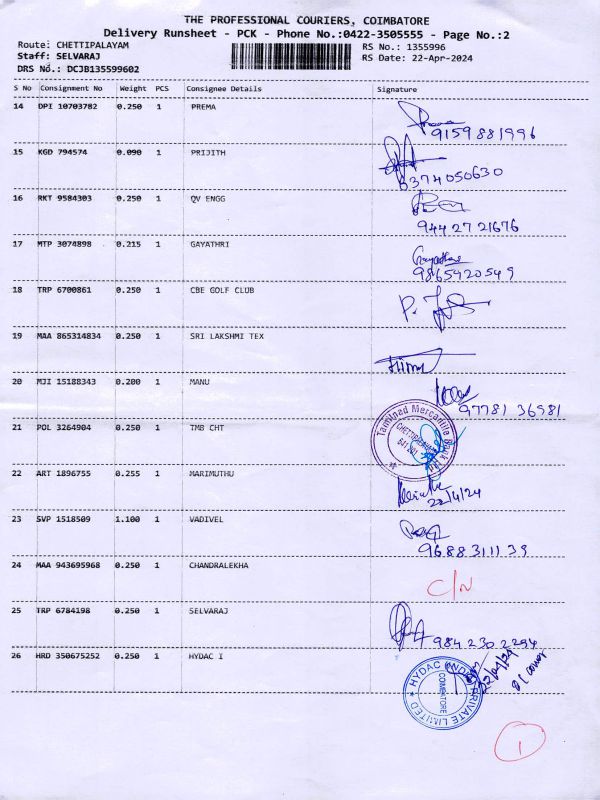 THE PROFESSIONAL COURIERS, COIMBATORE
Delivery Runsheet - PCK - Phone No.:0422-3505555 - Page No.:2
Route: CHETTIPALAYAM RS No.: 1355996
Staff: SELVARAJ RS Date: 22-Apr-2024
DRS No.: DCJB135599602
S No Consignment No Weight PCS Consignee Details Signature
14 DPI 10703782 0.250 1 PREMA
9159881996
15 KGD 794574 0.090 1 PRIJITH
8374050630
16 RKT 9584303 0.250 1 QV ENGG
9442721676
17 MTP 3074898 0.215 1 GAYATHRI
Gayathri
9865420549
18 TRP 6700861 0.250 1 CBE GOLF CLUB
19 MAA 865314834 0.250 1 SRI LAKSHMI TEX
20 MJI 15188343 0.200 1 MANU
97781 36981
21 POL 3264904 0.250 1 TMB CHT
Tamilnad Mercantile Bank Ltd
CHETTIPALAYAM
641 201
22 ART 1896755 0.255 1 MARIMUTHU
22/4/24
23 SVP 1518509 1.100 1 VADIVEL
9688311139
24 MAA 943695968 0.250 1 CHANDRALEKHA
C/N
25 TRP 6784198 0.250 1 SELVARAJ
984 230 2294
26 HRD 350675252 0.250 1 HYDAC I
HYDAC INDIA PRIVATE LIMITED
COIMBATORE
22/04/24
1